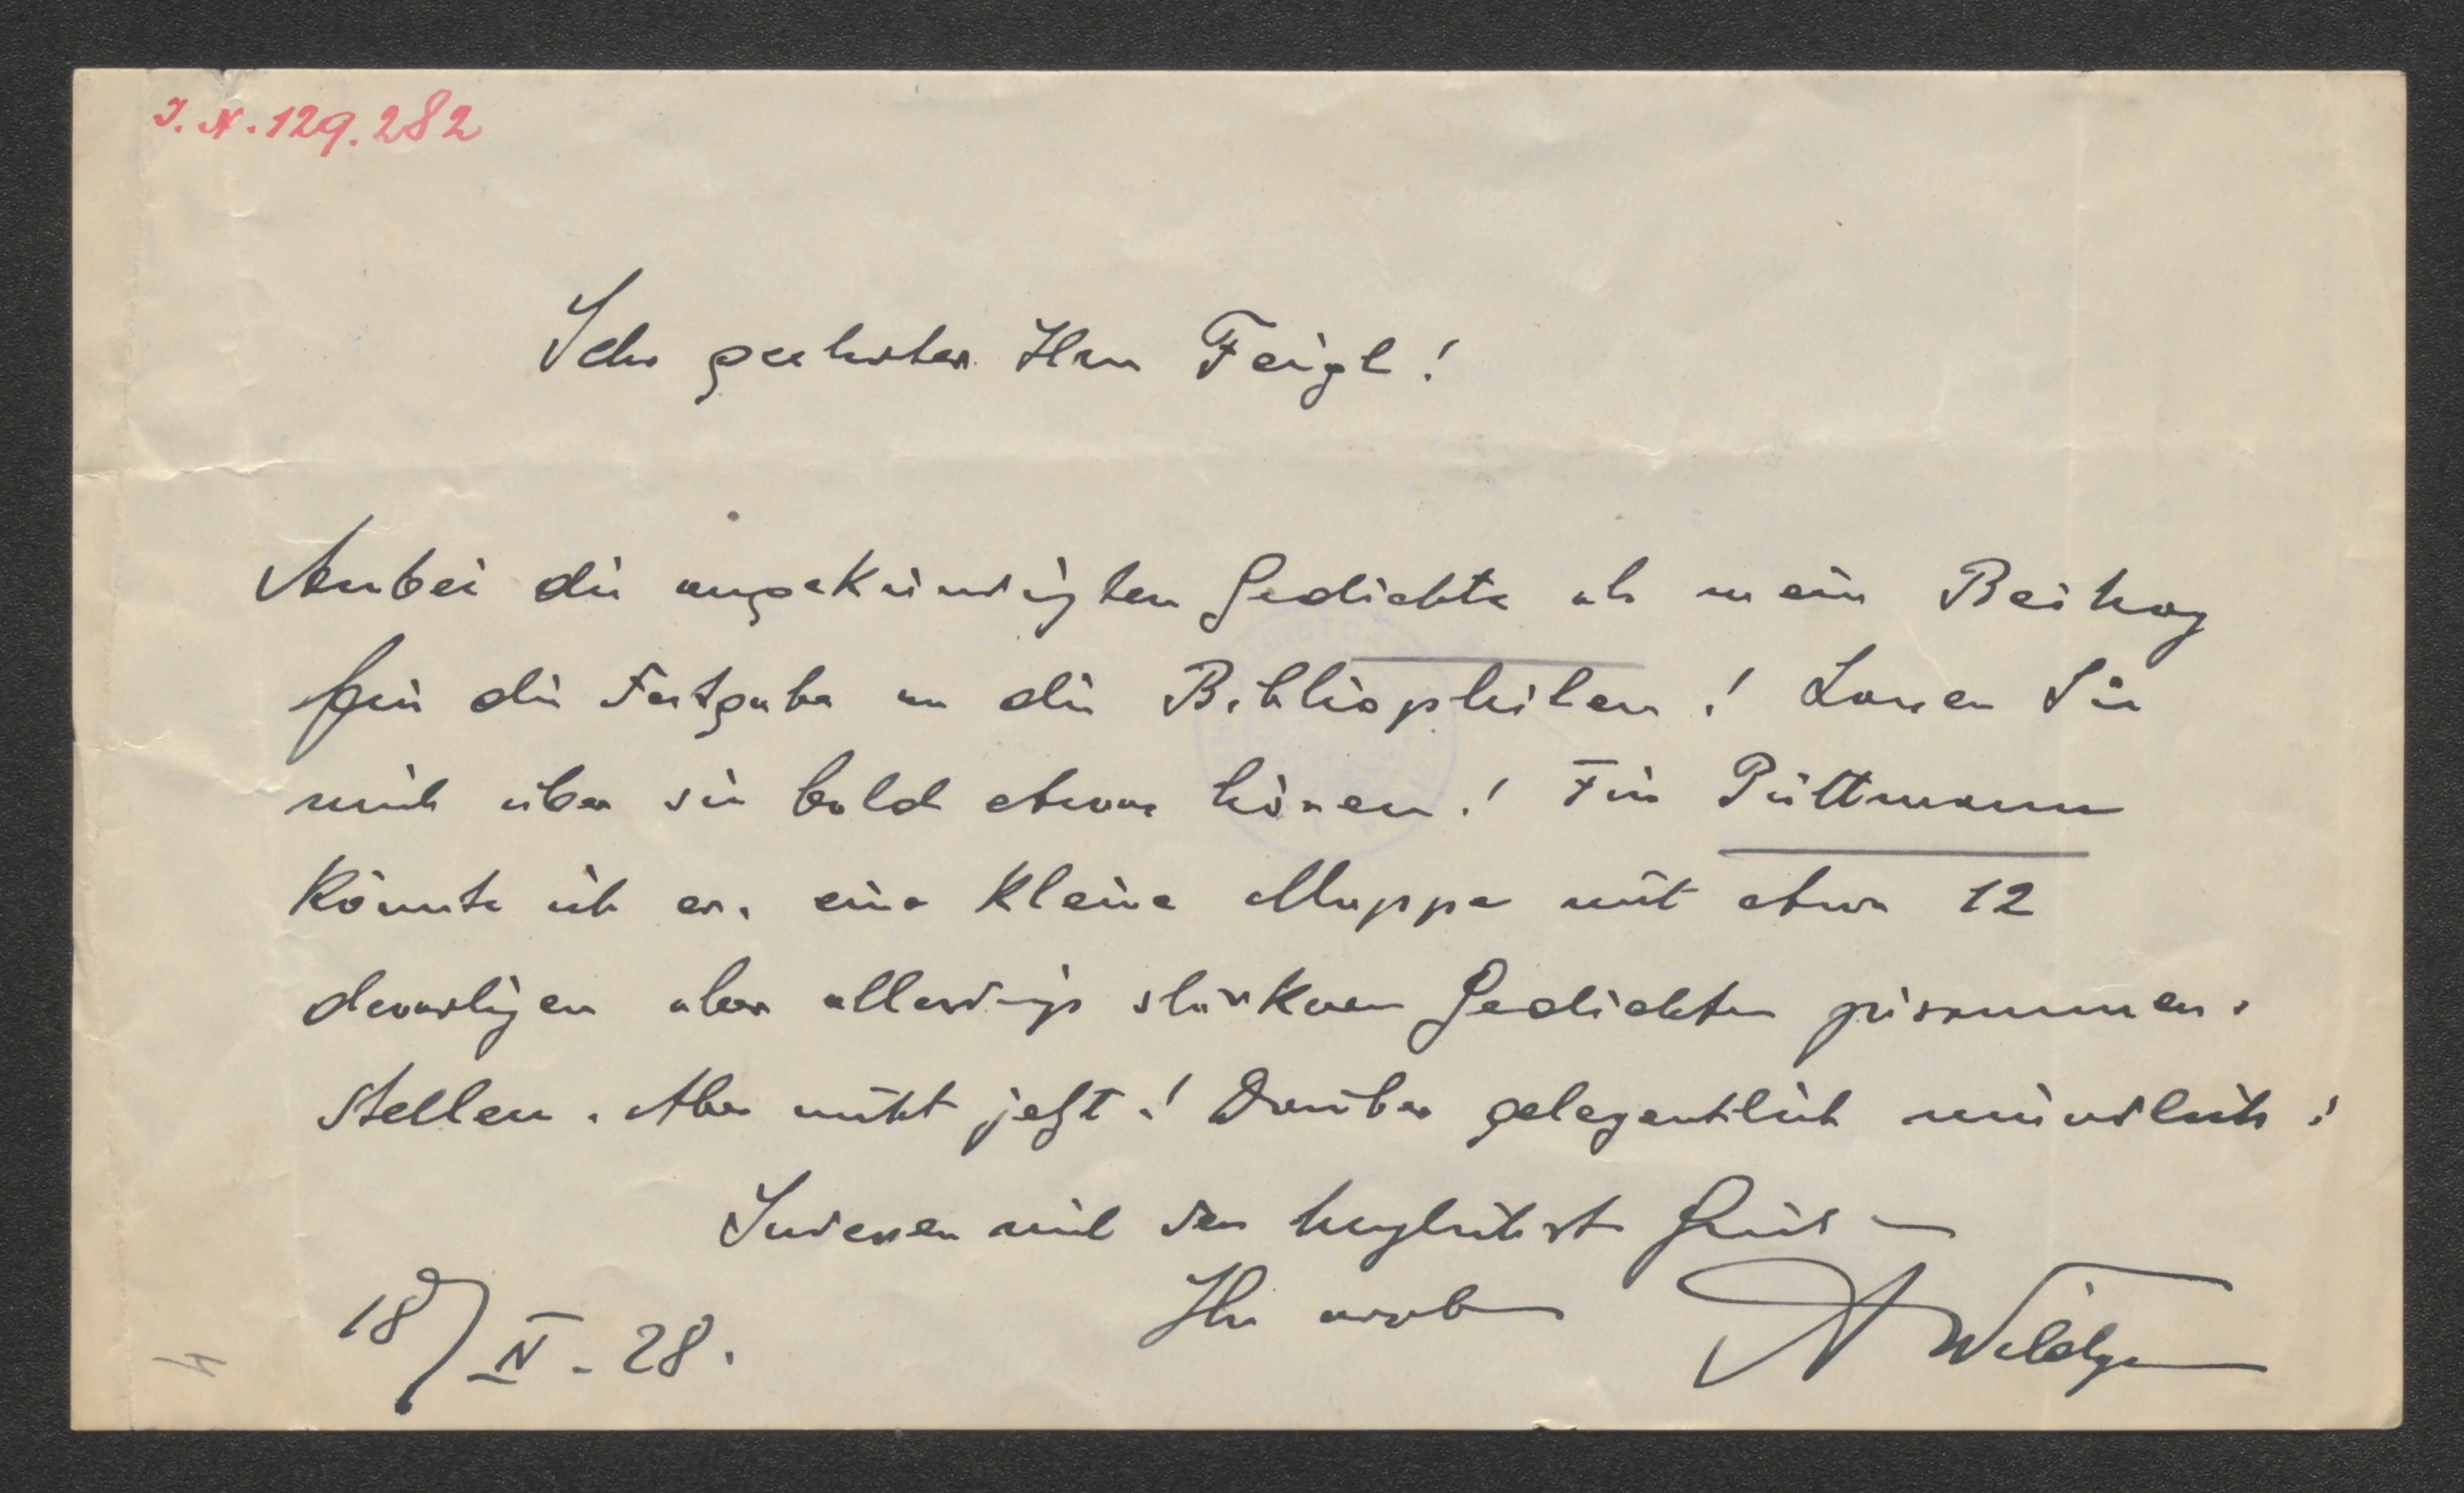 I. N. 129.282
Sehr geehrter Herr Feigl!
Anbei die angekündigten Gedichte als mein Beitrag
für die Festgabe an die Bibliophilen! Lassen Sie
mich über sie bald etwas hören! Für Püttmann
könnte ich ev. eine kleine Mappe mit etwa 12
derartigen aber allerdings stärkeren Gedichten zusammen-
stellen. Aber nicht jetzt! Darüber gelegentlich mündlich!
Indessen mit den herzlichst Grüß
Ihr ergeb
A Wildgans
18/IV. 28.